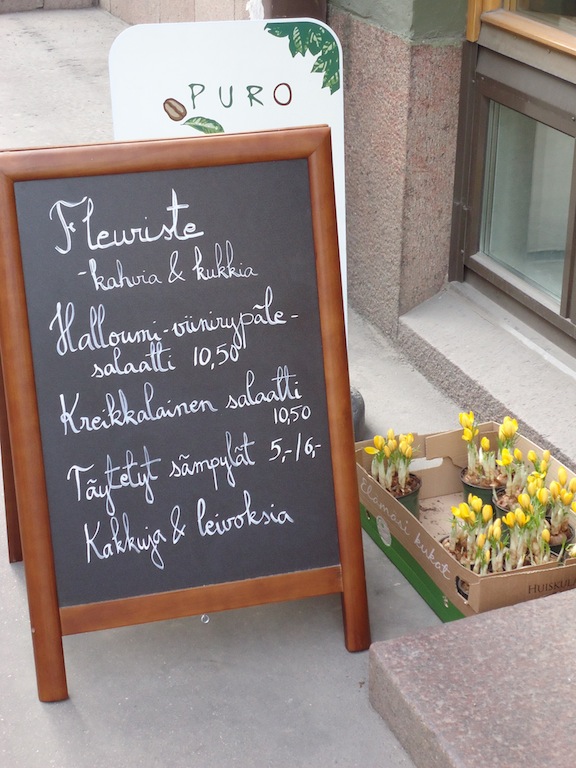 PURO
Fleuriste
-kahvia & kukkia
Halloumi-viinirypäle-
salaatti 10,50
Kreikkalainen salaatti
10,50
Täytetyt sämpylät 5,-/6,-
Kakkuja & leivoksia
Elämäsi kukat